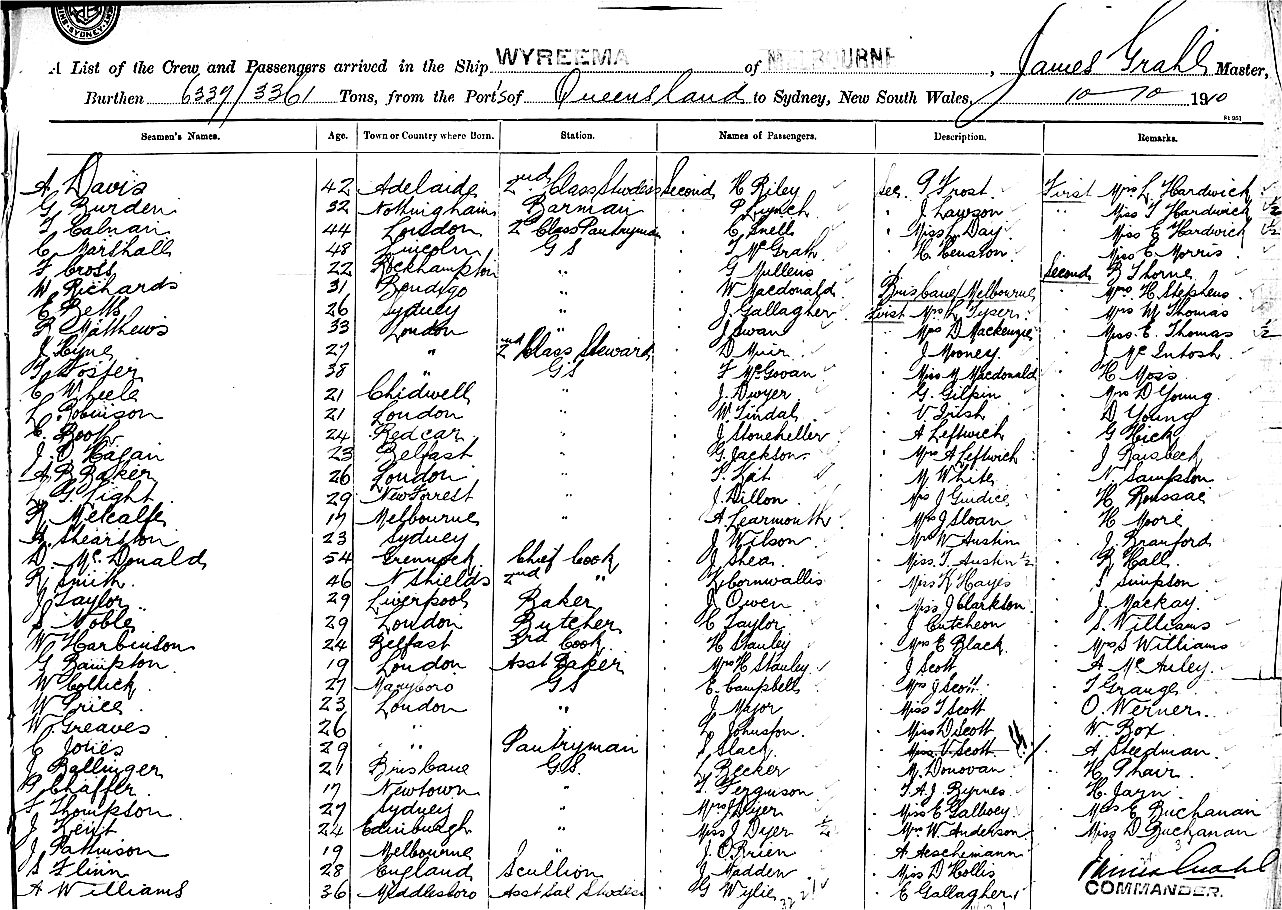 SYDNEY
WYREEMA MELBOURNE James Grahl
A List of the Crew and Passengers arrived in the Ship of , Master,
Burthen 6339/3361 Tons, from the Port's of Queensland to Sydney, New South Wales, 10 - 10 1910
Seamen's Names. Age. Town or Country where Born. Station. Names of Passengers. Description. Remarks.
A Davis 42 Adelaide 2nd Class Stwdess Second H Riley Sec. P Frost First Mrs L Hardwick
G Burden 32 Nottingham Barman " P Lynch " J Lawson " Miss T Hardwick ½
T Calnan 44 London 2nd Class Pantryman " C Snell " Miss L Day " Miss E Hardwick ½
C Marshall 48 Lincoln G S " T McGrath " H Henston " Miss E Morris
F Cross 22 Rockhampton " " G Mullens Second B Thorne
W Richards 31 Bendigo " " W Macdonald Brisbane/Melbourne " Mrs H Stephens
E Betts 26 Sydney " " J Gallagher First Mrs L Tyser " Mrs W Thomas
R Matthews 33 London " " J Swan " Mrs D Mackenzie " Miss E Thomas ½
J Hyne 27 " 2nd Class Steward " D Muir " J Mooney " J McIntosh
F Foster 38 " G S " F McGovan " Miss M Macdonald " H Moss
C Wheele 21 Chidwell " " J Dwyer " G. Gilpin " Mrs D Young
L Robinson 21 London " " W Lindal " V Irish " D Young
C. Booth 24 Redcar " " J Stoneheller " A Leftwich " G Hick
J. O Hagan 23 Belfast " " G. Jackson " Mrs A Leftwich " J Raisbeck
A B Baker 26 London " " T. Kat " M White " N Sampson
L G Tight 29 New Forrest " " J. Dillon " Mrs J Guidice " H Roussac
R Metcalfe 17 Melbourne " " A Learmouth " Mrs J Sloan " H Moore
R Shearston 23 Sydney " " J Wilson " Mrs W Austin " J Branford
D. McDonald 54 Greenock Chief Cook " J Shea " Miss T Austin ½ " R Hall
R Smith 46 N Shields 2nd " " Z Cornwallis " Miss K Hayes " T Simpson
J Taylor 29 Liverpool Baker " R Owen " Miss J Clarkson " J Mackay
S Noble 29 London Butcher " C Taylor " J Cutcheon " S Williams
W Harbinson 24 Belfast 3rd Cook " H Stanley " Mrs E Black " Mrs S Williams
G Bampton 19 London Asst Baker " Mrs H Stanley " J Scott " A McAuley
W Collick 27 Maryboro G S " E. Campbell " Mrs J Scott " T Grange
W Price 23 London " " J Major " Miss T Scott " O. Werner
W Greaves 26 " " L Johnston " Miss D Scott " W. Box
C Jones 29 " Pantryman " S Slack " Miss V. Scott " A Steedman
J Ballinger 21 Brisbane G.S. " L Becker " M. Donovan " H. Phair
G Chaffer 17 Newtown " " T. Ferguson " T.A.J. Byrnes " H. Jarn
F Thompson 27 Sydney " " Mrs J Dyer " Miss E Gallwey " Mrs E Buchanan
J Kent 24 Edinburgh " " Miss J Dyer ½ " Mrs W. Anderson " Miss D Buchanan
J. Pattinson 19 Melbourne " J. O'Brien " A Aeschimann
S Flinn 28 England Scullion " J Madden " Miss D Hollis James Grahl
A Williams 36 Middlesboro Asst Sal Stwdess " G Wylie " E Gallagher COMMANDER.